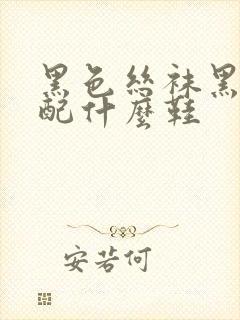 黑色絲袜黑
配什麼鞋
安若何